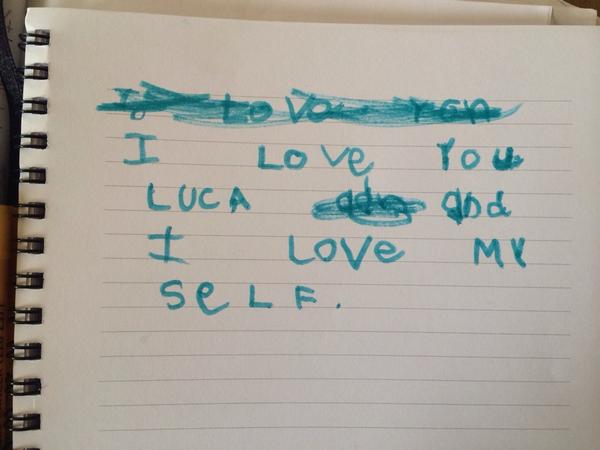 I LOVE YOU
LUCA and
I LOVE MY
SELF.